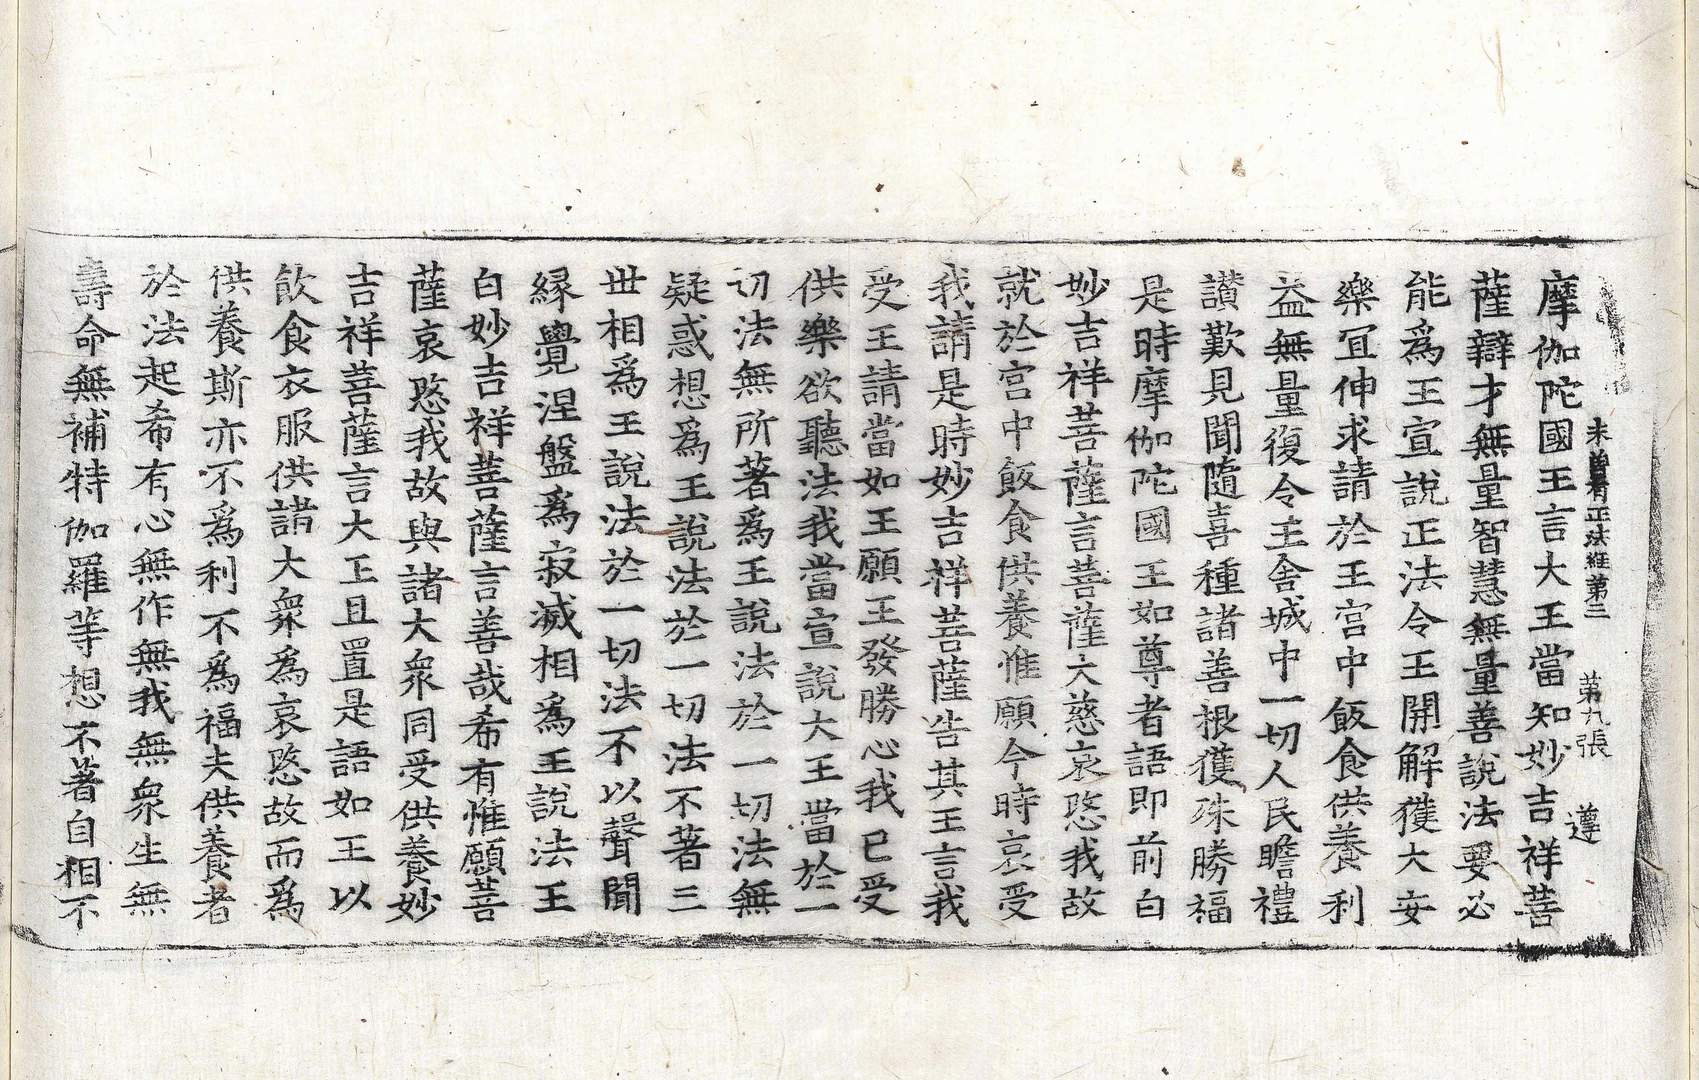 未曾有正法經第三 第九張 遵
摩伽陀國王言大王當知妙吉祥菩
薩辯才無量智慧無量善說法要必
能爲王宣說正法令王開解獲大安
樂冝伸求請於王宮中飯食供養利
益無量復令王舍城中一切人民瞻禮
讃歎見聞隨喜種諸善根獲殊勝福
是時摩伽陀國王如尊者語即前白
妙吉祥菩薩言菩薩大慈哀愍我故
就於宮中飯食供養惟願今時哀受
我請是時妙吉祥菩薩告其王言我
受王請當如王願王發勝心我已受
供樂欲聽法我當宣說大王當於一
切法無所著爲王說法於一切法無
疑惑想爲王說法於一切法不著三
世相爲王說法於一切法不以聲聞
縁覺涅盤爲寂滅相爲王說法王
白妙吉祥菩薩言善哉希有惟願菩
薩哀愍我故與諸大衆同受供養妙
吉祥菩薩言大王且置是語如王以
飲食衣服供諸大衆爲哀愍故而爲
供養斯亦不爲利不爲福夫供養者
於法起希有心無作無我無衆生無
壽命無補特伽羅等想不著自相不